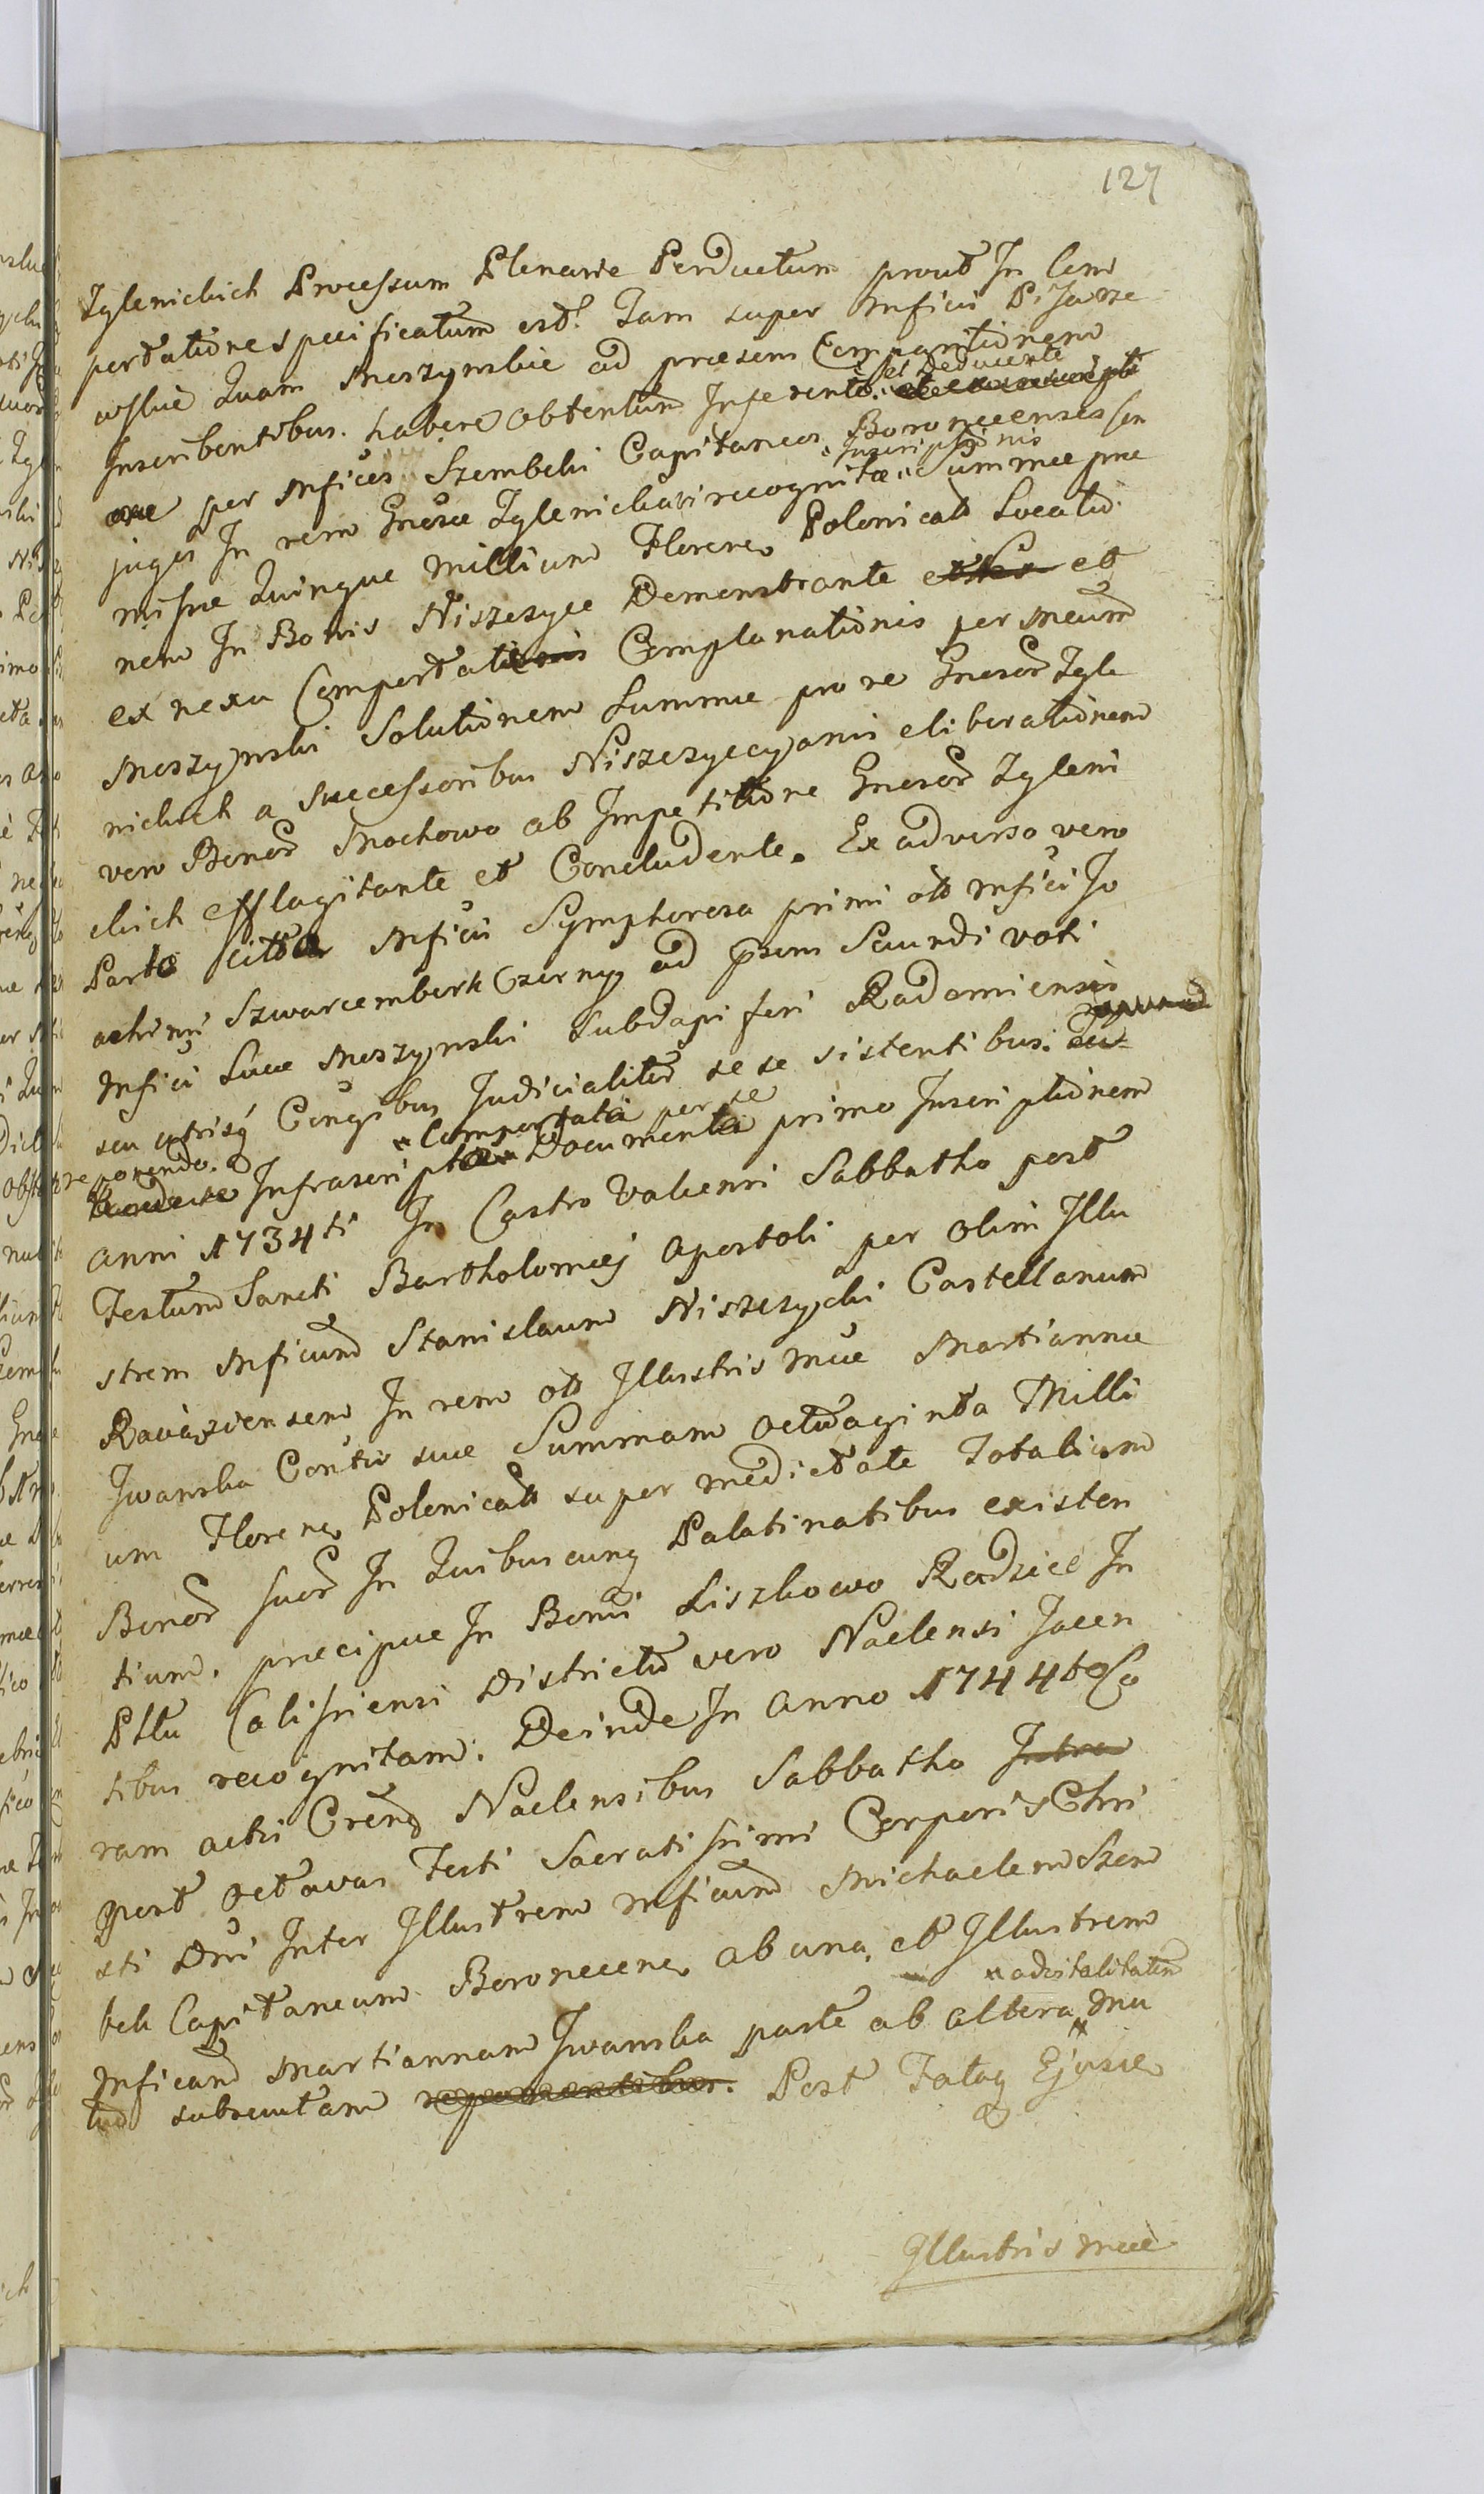 127
Zglenickich Processum Plenarie Perductum prout In Com
portatione specificatum est. Tam super Mficis P. Jarze
wskie Quam Moszynskie ad præsens Comparitionem
Inscribentibus. habere obtentum Inferente. et Deducente
per Mficos Szembeki Capitaneos Boronecenses Con
juges In rem Gnosæ Zglenicka recognitæ Inscriptionis Summæ præ
missæ Quinque Millium Floreno Polonicad Locatio
nem In Bonis Niszczyce Demonstrante et
ex nexu Comportationis Complanationis per Mcum
Moszynski Solutionem Summæ pro re Gnosor Zgle
nickich a Successoribus Niszczycyanis eliberationem
vero Bonor Mochowo ab Impetitione Gnosor Zgleni
ckich efflagitante et Concludente. Ex adverso vero
Parte citata Mficis Symphorosa primi olt Mfici Jo
achimi Szwarcemberk Czerny ad præns Secundi voti
Mfici Lucæ Moszynski Subdapiferi Radomiensis
seu utrisq Congibus Judicialiter se se sistentibus.
reponendo Infrascripta Comportata per se Documenta primo Inscriptionem
Anni 1734ti In Castro Valcensi Sabbatho post
Festum Sancti Bartholomæj Apostoli per olim Illu
strem Mficum Stanislaum Niszczycki Castellanum
Raciąziensem In rem olt Illustris Mcæ Martiannæ
Iwanska Contis suæ Summam Octuaginta Milli
um Floreno Polonicalt super medietate Totalium
Bonor suor In Quibuscunq Palatinatibus existen
tium. præcipue In Bonis Liszkowo Radzice In
Pltu Calissiensi Districtu vero Naclensi Jacen
tibus recognitam. Deinde In Anno 1744to Co
ram actis Crens Naclensibus Sabbatho Intra
post octavas Festi Sacratissimi Corporis Chri
sti Dni Inter Illustrem Mficum Michaelem Szem
bek Capitaneum Boronecens ab una, et Illustrem
Mficam Martiannam Iwanska parte ab altera advitalitatem mu
tuo subsecutam Post Fataq Ejusce
Illustris Mcæ